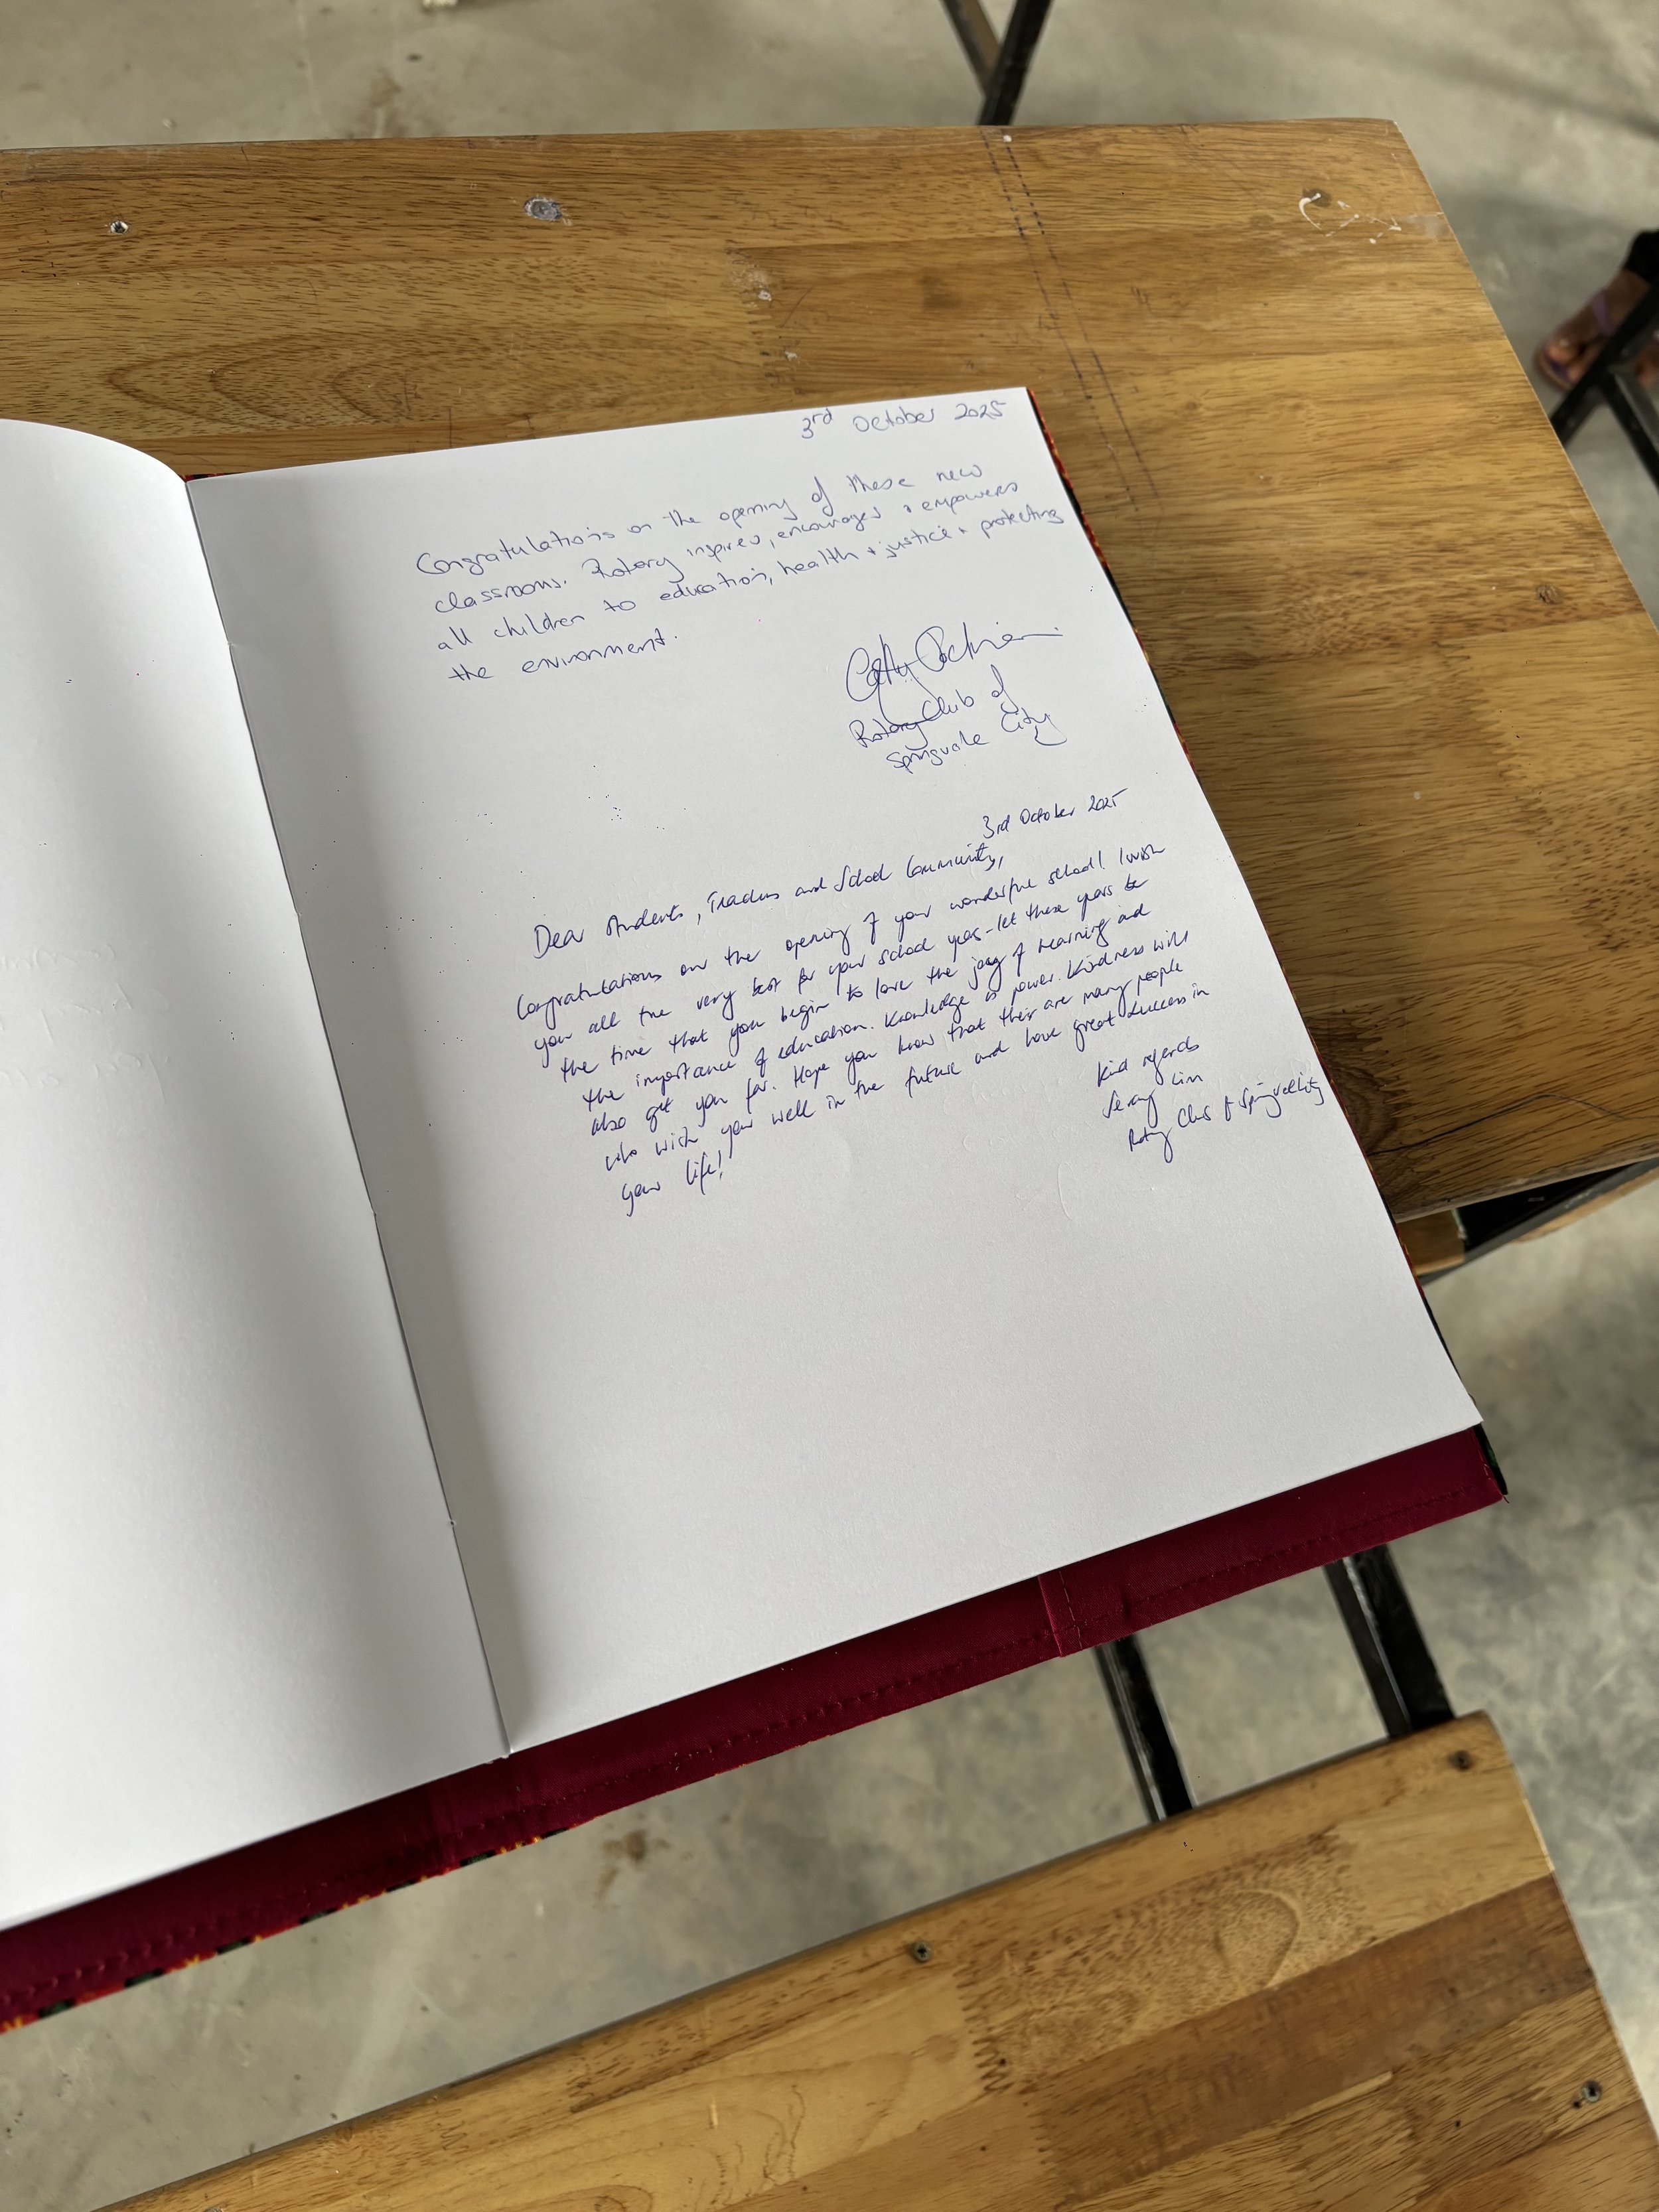 3rd October 2025
Congratulations on the opening of these new
classrooms. Rotary inspires, encourages + empowers
all children to education, health + justice + protecting
the environment.
Rotary Club of
Springvale City
3rd October 2025
Dear Students, Teachers and School Community,
Congratulations on the opening of your wonderful school! I wish
you all the very best for your school years - let these years be
the time that you begin to love the joy of learning and
the importance of education. Knowledge is power. Kindness will
also get you far. Hope you know that their are many people
who wish you well in the future and have great success in
your life!
Kind regards
Lim
Rotary Club of Springvale City